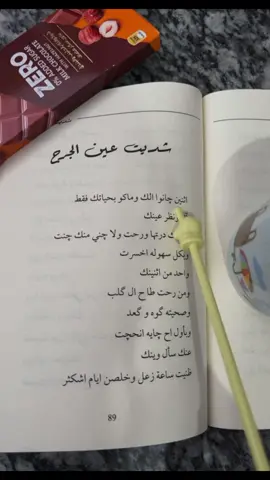 ZERO
% ADDED SUGAR
MILK CHOCOLATE
شديت عين الجرح
اثنين چانوا الك وماكو بحياتك فقط
بنظر عينك
درتها ورحت ولا چني منك چنت
وبكل سهوله اخسرت
واحد من اثنينك
ومن رحت طاح ال گلب
وصحيته گوه و گعد
وبأول اح چايه انحچت
عنك سأل وينك
ظنيت ساعة زعل وخلصن ايام اشكثر
89